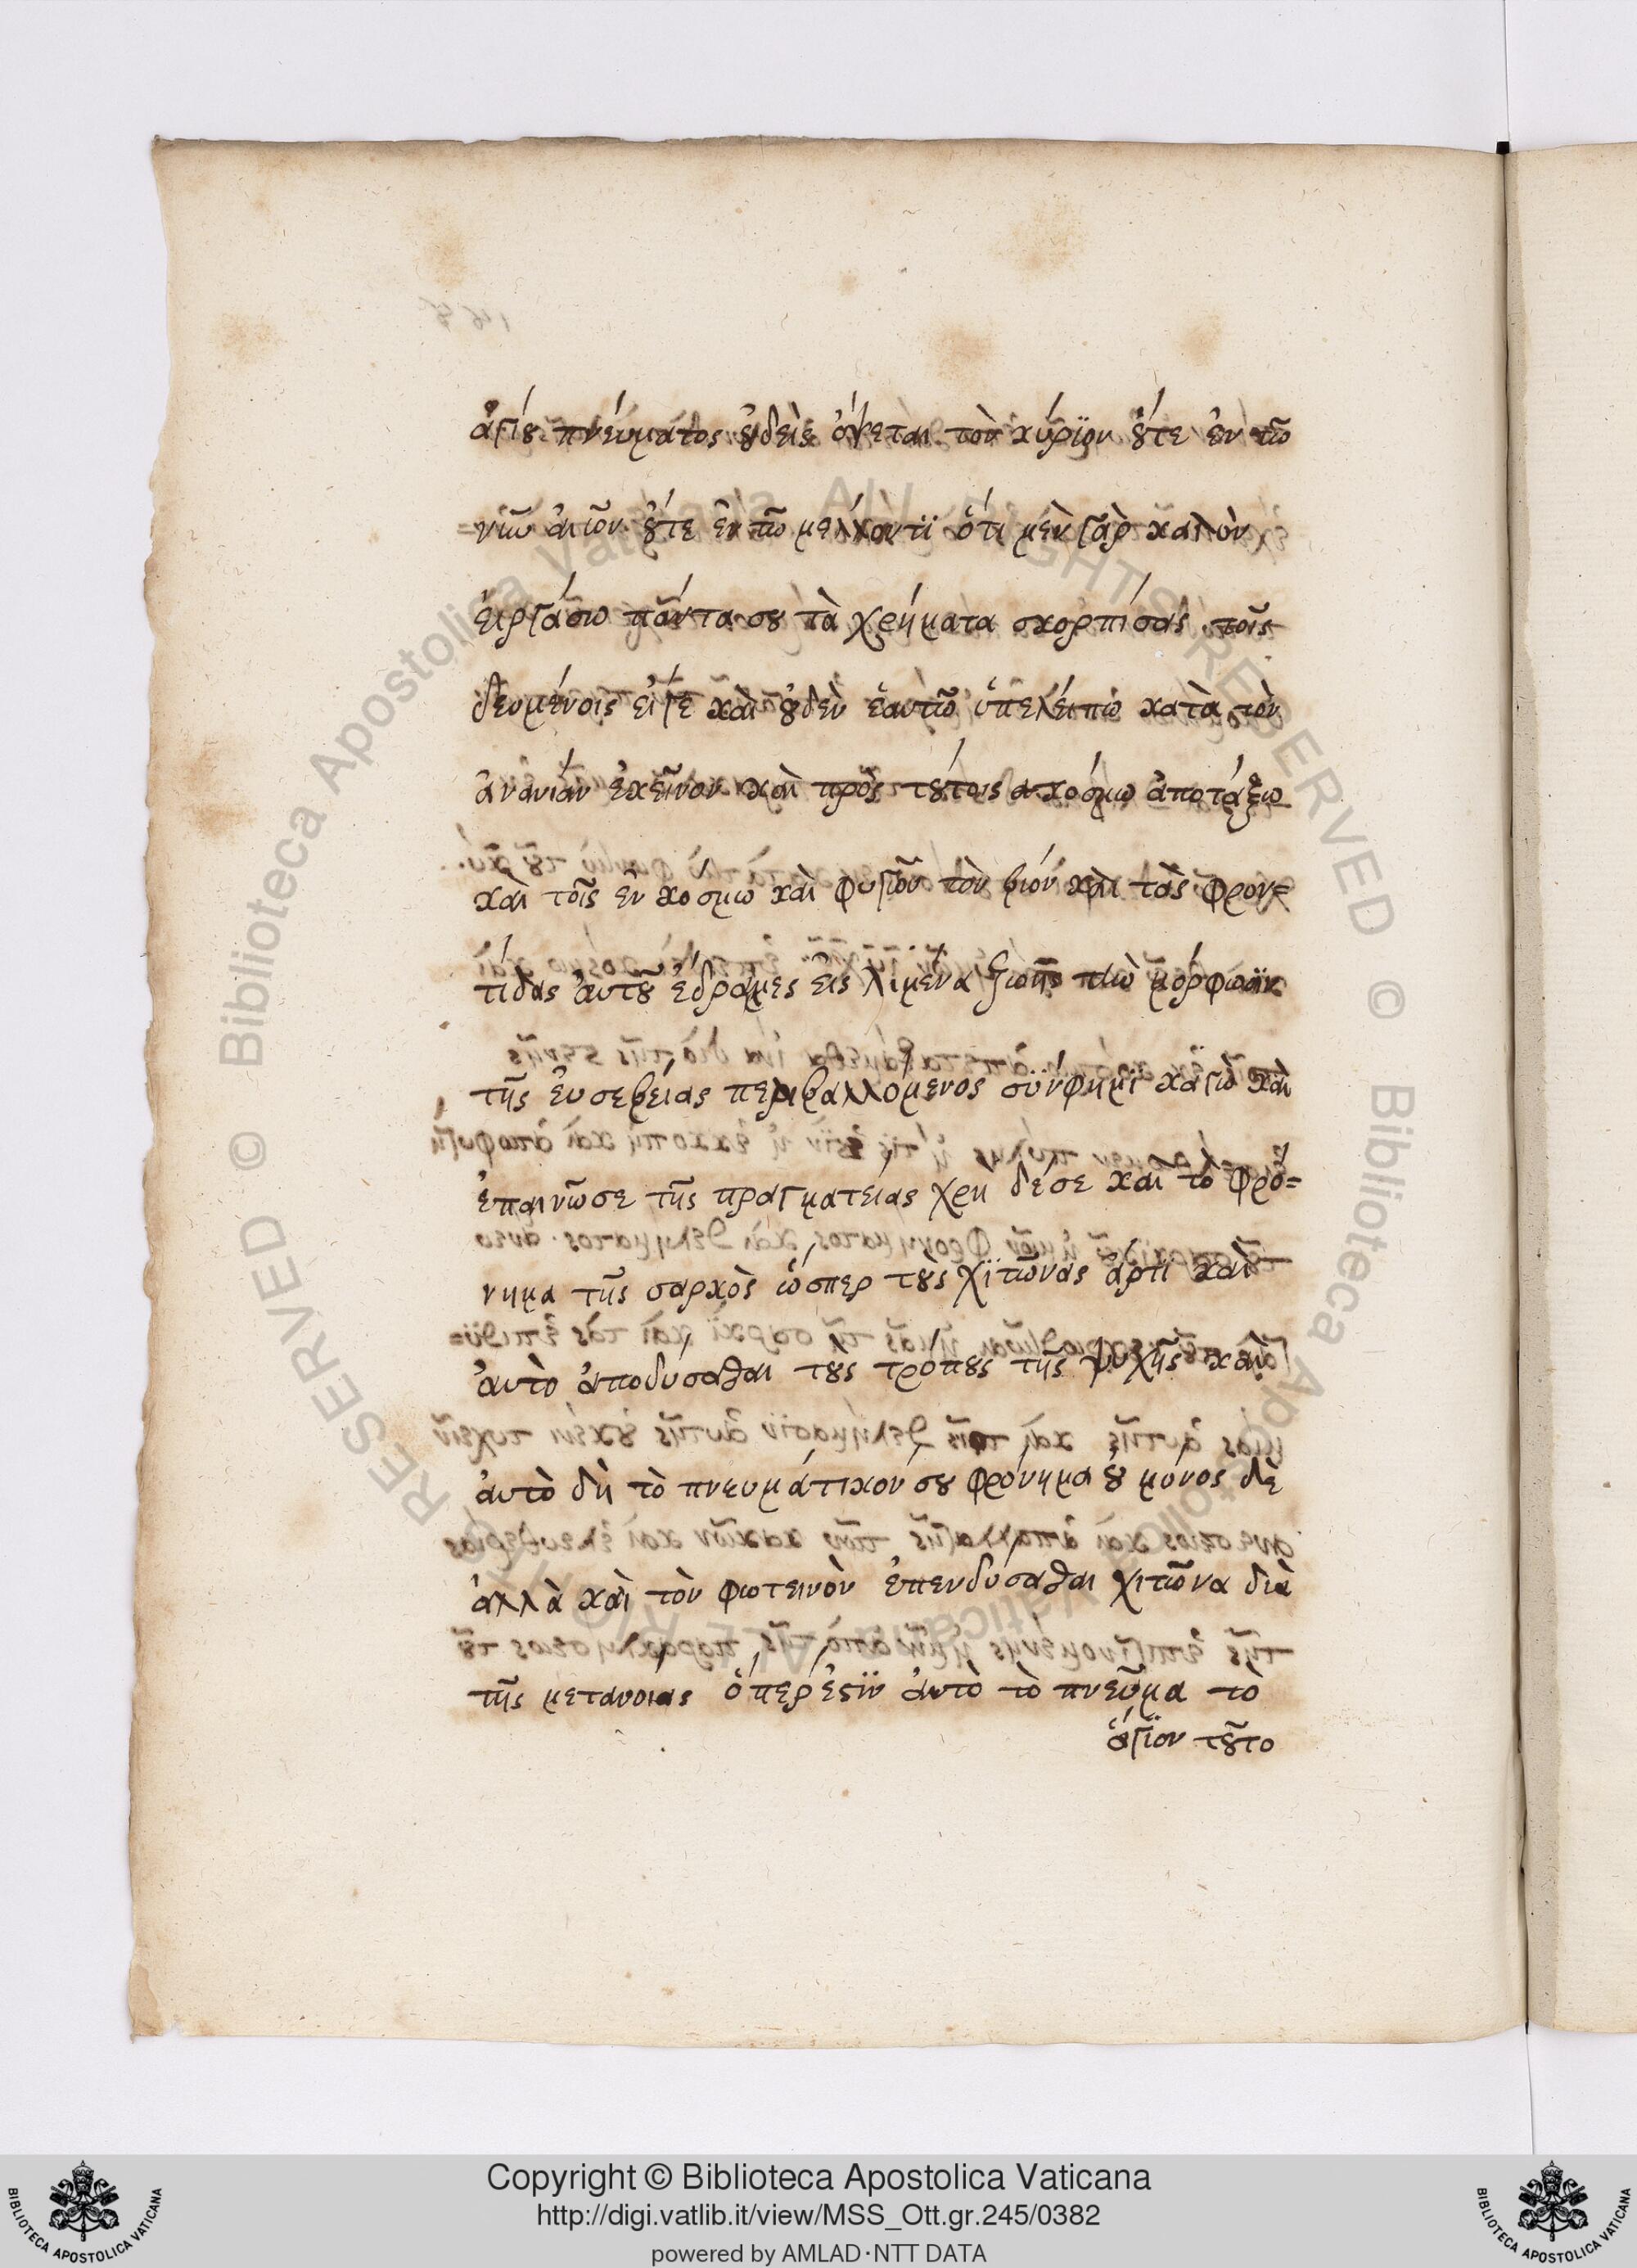 ἁγίου πνεύματος οὐδεὶς ὄψεται τὸν κύριον οὔτε ἐν τῶ
νῦν αἰῶν οὔτε ἐν τῶ μέλλοντϊ ὅτι μὲν γὰρ καλὸν
ἐιργάσω πάντα σου τὰ χρήματα σκορπίσας τοῖς
δεομένοις εἴγε καὶ οὐδὲν ἑαυτῶ ὑπελείπω κατὰ τὸν
ἀνανίαν ἐκεῖνον καὶ πρὸς τούτοις κόσμω ἀποτάξω
καὶ τοῖς ἐν κοσμω καὶ φυγῶν τὸν βιόν καὶ τὰς φρον=
τίδας ἀυτοῦ ἔδραμες εἰς λιμένα ζωῆς τὴν μόρφωσϊν
τῆς ἐυσεβείας περιβαλλόμενος σύνφημϊ καγὼ καὶ
ἐπαινῶσε τῆς πραγματείας χρὴ δέσε καὶ τὸ φρό=
νημα τῆς σαρκὸς ὥσπερ τοὺς χϊτῶνας ἄρτϊ καὶ
ἀυτὸ ἀποδύσασθαι τους τρόπους τῆς ψυχῆς καὶ
ἀυτὸ δὴ τὸ πνευμάτικον σου φρόνημα οὐ μόνος δὲ
ἀλλὰ καὶ τὸν φωτεινὸν ἐπενδύσασθαι χιτῶνα διὰ
τῆς μετανοιας ὅπερ ἐστϊν ἀυτὸ τὸ πνεῦμα το
ἅγϊον τοῦτο
Copyright © Biblioteca Apostolica Vaticana
http://digi.vatlib.it/view/MSS_Ott.gr.245/0382
powered by AMLAD·NTT DATA
BIBLIOTECA APOSTOLICA VATICANA
BIBLIOTECA APOSTOLICA VATICANA